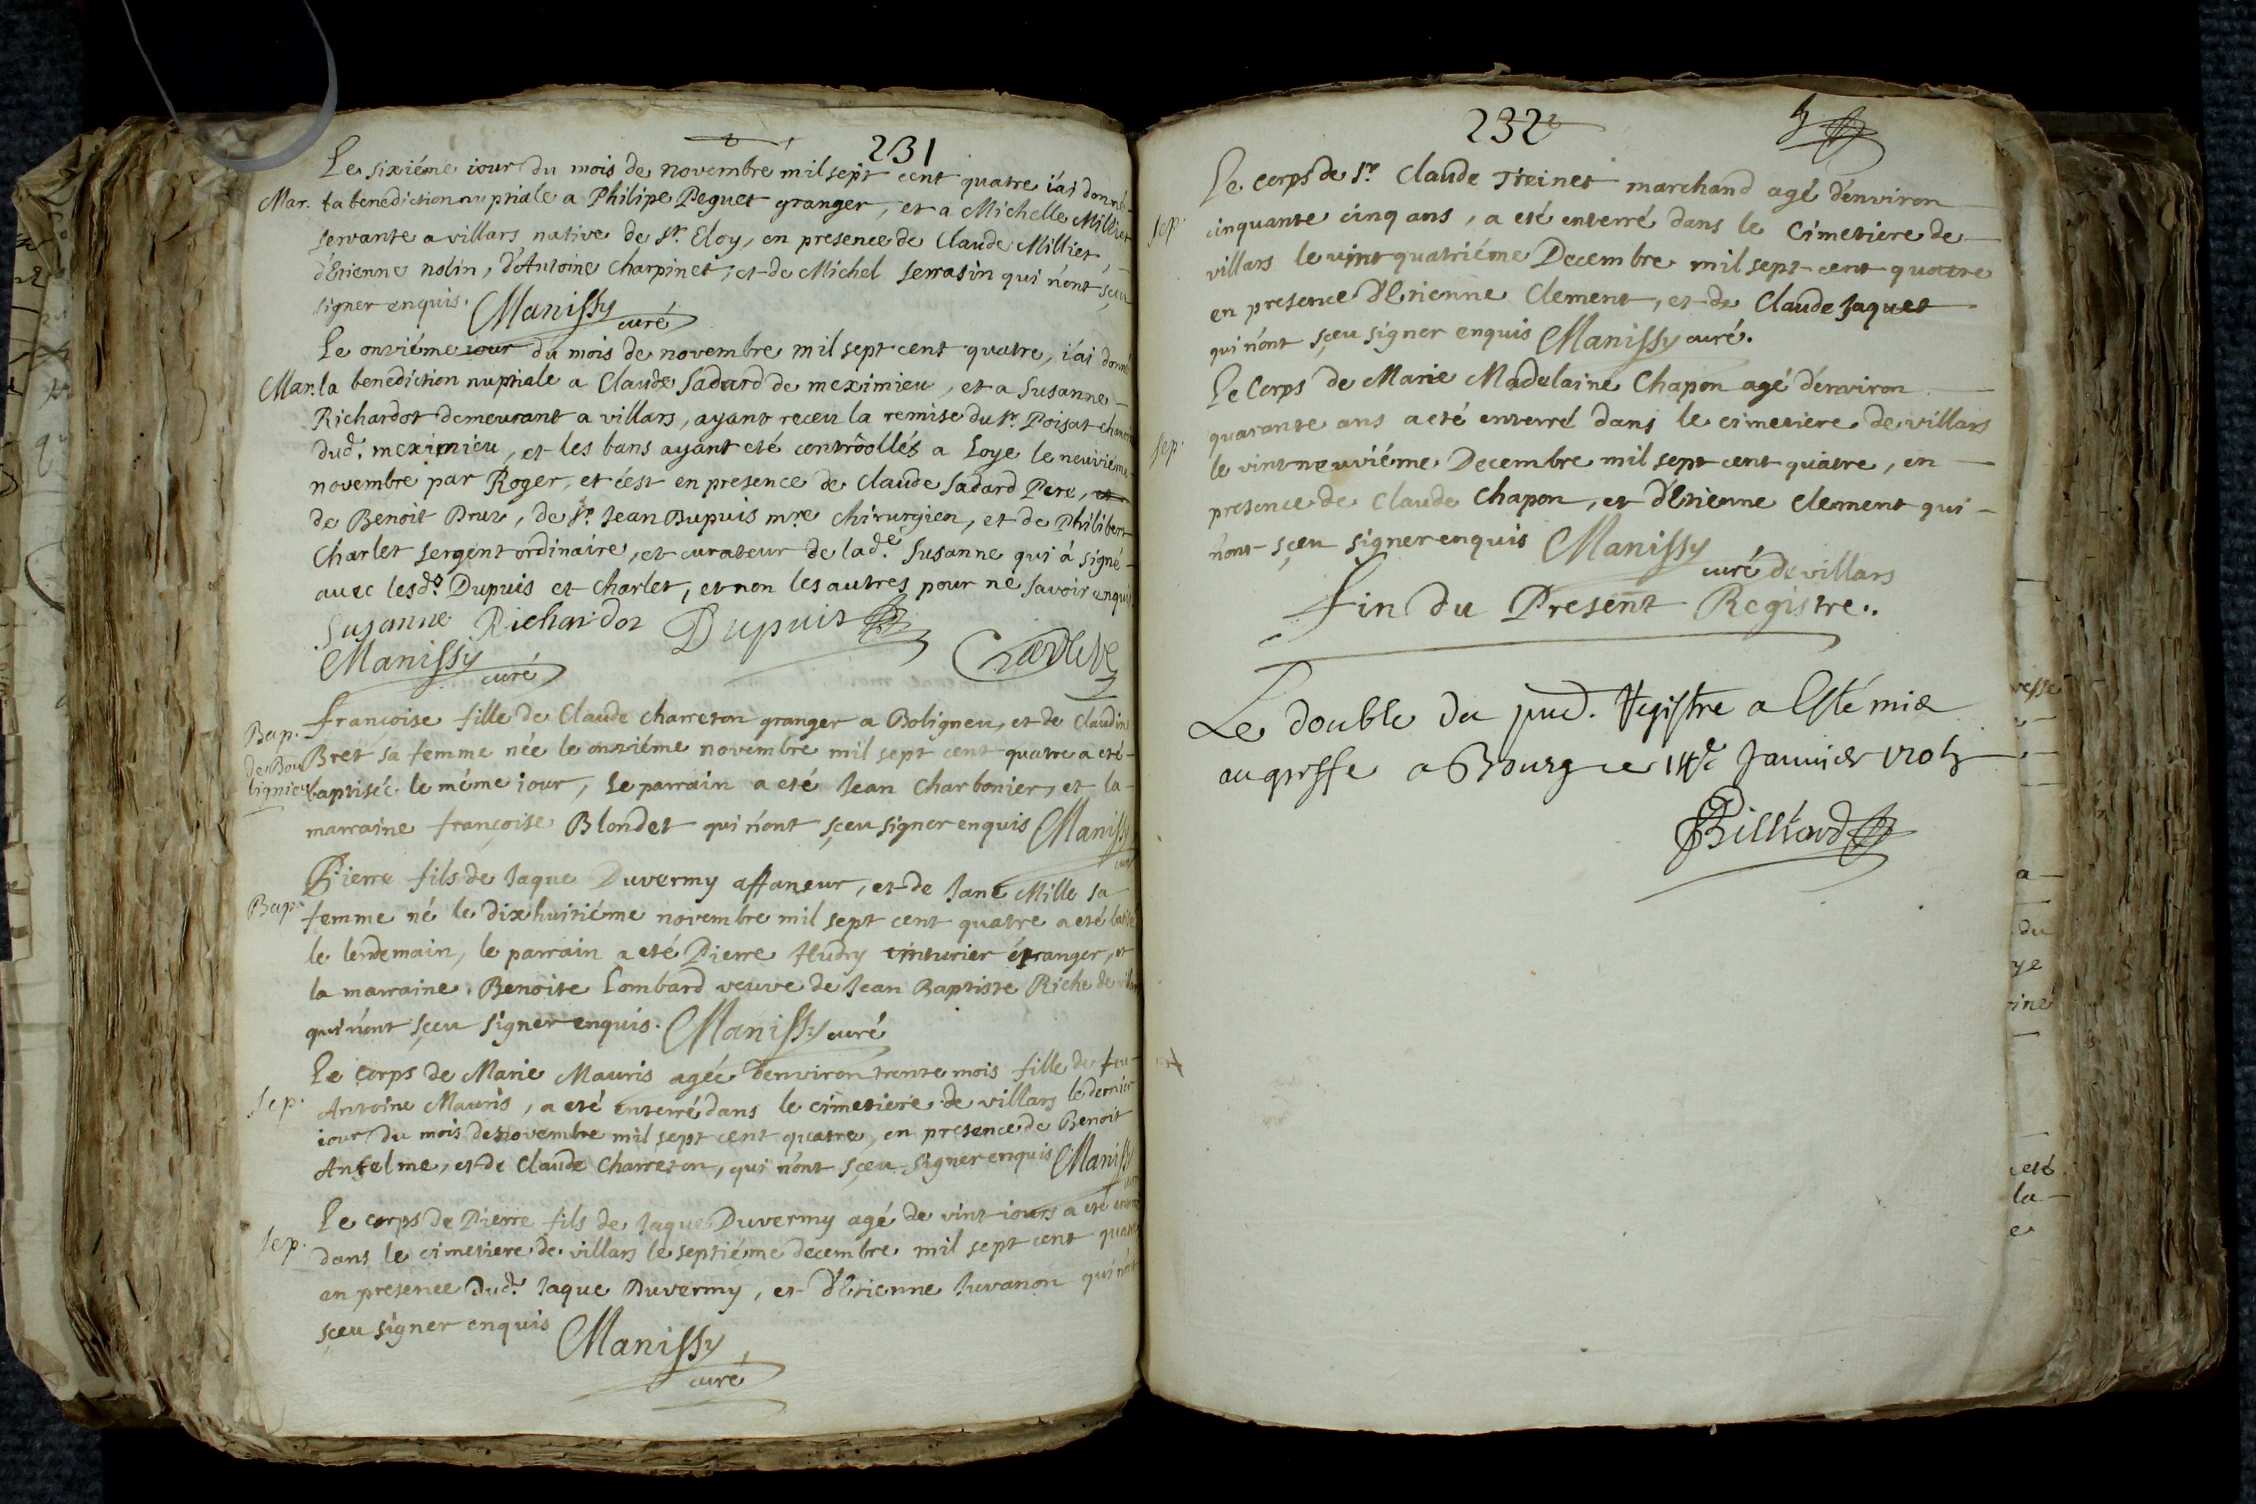 231
Le sixiéme iour du mois de novembre mil sept cent quatre i'ai donné
Mar. la benediction nuptiale a Philipe Peguet granger, et a Michelle Milliet
servante a villars native de St. Eloy, en presence de Claude Milliet,
d'Etienne nolin, d'Antoine Charpinet, et de Michel Serrasin qui n'ont sçeu
signer enquis. Manissy
curé
Le onziéme iour du mois de novembre mil sept cent quatre, i'ai donné
Mar. la benediction nuptiale a Claude Sadard de meximieu, et a Susanne
Richardot demeurant a villars, ayant receu la remise du Sr. Poisat
dud. meximieu, et les bans ayant eté contrôollés a Loye le neuviéme
novembre par Roger, et c'est en presence de Claude Sadard Pere, et
de Benoit Druz, de Sr. Jean Dupuis mre chirurgien, et de Philibert
Charlet sergent ordinaire, et curateur de lade. Susanne qui à signé
avec lesds. Dupuis et Charlet, et non les autres pour ne savoir enquis
Susanne Richardot Dupuis
Manissy
curé
Bap. françoise fille de Claude charreton granger a Boligneu, et de Claudine
de Bou Bret sa femme née le onziéme novembre mil sept cent quatre a eté
lignieu baptisée le méme iour, le parrain a eté Jean Charbonier, et la
marraine françoise Blondet qui n'ont sçeu signer enquis Manissy
curé
Pierre fils de Jaque Duvermy affaneur, et de Jane Mille sa
Bap. femme né le dixhuitiéme novembre mil sept cent quatre a eté batisé
le lendemain, le parrain a eté Pierre Hudry étranger, et
la marraine Benoite Lombard veuve de Jean Baptiste Riche de villars
qui n'ont sçeu signer enquis. Manissy curé
Le corps de Marie Mauris agée d'environ trente mois fille de feu
Sep. Antoine Mauris, a eté enterré dans le cimetiere de villars le dernier
iour du mois de novembre mil sept cent quatre, en presence de Benoit
Anselme, et de Claude Charreton, qui n'ont sçeu signer enquis Manissy
Le corps de Pierre fils de Jaque Duvermy agé de vint iours a eté enterré
Sep. dans le cimetiere de villars le septiéme decembre mil sept cent quatre
en presence dud. Jaque Duvermy, et d'Etienne Juvanon qui n'ont
sçeu signer enquis Manissy
curé
232
Le corps de Sr. Claude Treinet marchand agé d'environ
Sep. cinquante cinq ans, a eté enterré dans le Cimetiere de
villars le vint quatriéme Decembre mil sept cent quatre
en presence d'Etienne Clement, et de Claude Jaquet
qui n'ont sçeu signer enquis Manissy curé.
Le Corps de Marie Madelaine Chapon agé d'environ
Sep. quarante ans a eté enterré dans le cimetiere de villars
le vint neuviéme Decembre mil sept cent quatre, en
presence de Claude Chapon, et d'Etienne Clement qui
n'ont sçeu signer enquis Manissy
curé de villars
fin du Present Registre.
Le double du Registre a Esté mis
au greffe a Bourg ce Janvier 1705
Billiard